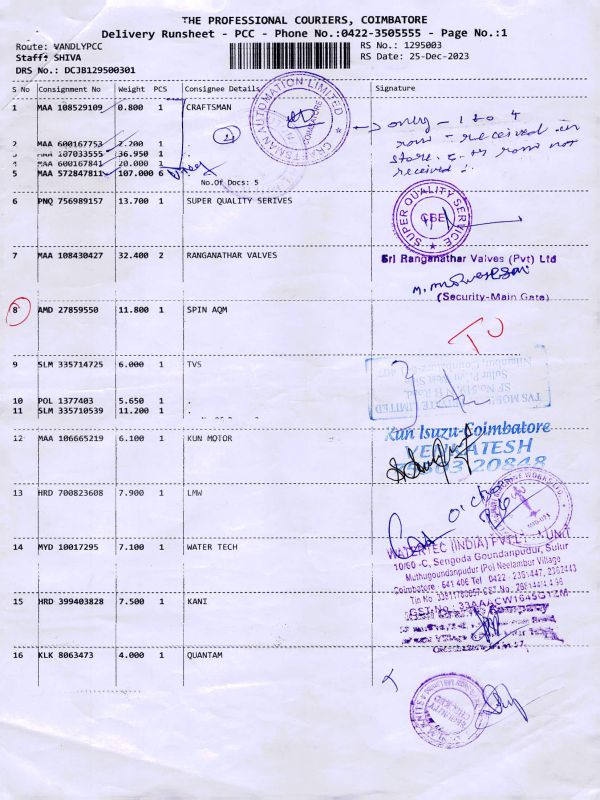 THE PROFESSIONAL COURIERS, COIMBATORE
Delivery Runsheet - PCC - Phone No.:0422-3505555 - Page No.:1
Route: VANDLYPCC
RS No.: 1295003
Staff: SHIVA
RS Date: 25-Dec-2023
DRS No.: DCJB129500301
S No Consignment No Weight PCS Consignee Details Signature
1 MAA 108529109 0.800 1 CRAFTSMAN
CRAFTSMAN AUTOMATION LIMITED
COIMBATORE
only - 1 to 4
row - received in
store. row not
received
2 MAA 600167753 2.200 1 .
3 MAA 107033555 36.950 1 .
4 MAA 600167841 20.000 1
5 MAA 572847811 107.000 6
No.Of Docs: 5
6 PNQ 756989157 13.700 1 SUPER QUALITY SERIVES
SUPER QUALITY SERVICE
CBE
7 MAA 108430427 32.400 2 RANGANATHAR VALVES
Sri Ranganathar Valves (Pvt) Ltd
(Security-Main Gate)
8 AMD 27859550 11.800 1 SPIN AQM
9 SLM 335714725 6.000 1 TVS
10 POL 1377403 5.650 1 .
11 SLM 335710539 11.200 1 .
Kun Isuzu-Coimbatore
VENKATESH
12 MAA 106665219 6.100 1 KUN MOTOR
13 HRD 700823608 7.900 1 LMW
14 MYD 10017295 7.100 1 WATER TECH
WATERTEC (INDIA) PVT LTD UNIT
10/60 -C, Sengoda Goundanpudur, Sulur
Muthugoundanpudur (Po) Neelambur Village
Coimbatore - 641 406 Tel 0422 - 2361447, 2362443
15 HRD 399403828 7.500 1 KANI
16 KLK 8063473 4.000 1 QUANTAM